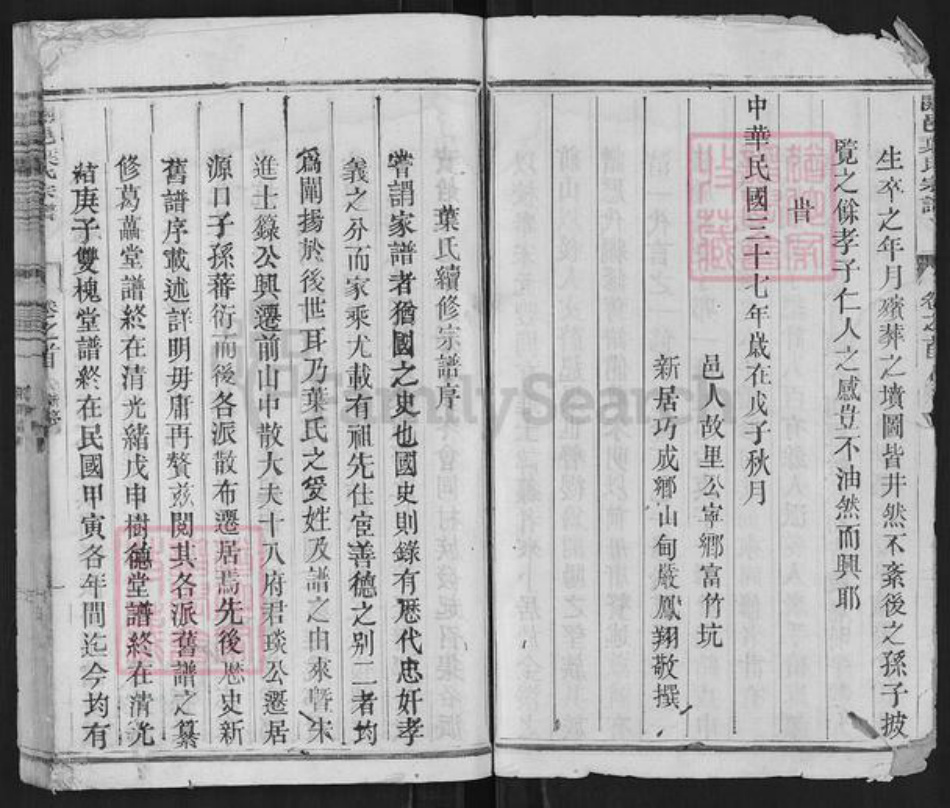 生卒之年月殯葬之墳圖皆井然不紊後之孫子披
覽之餘孝子仁人之感豈不油然而興耶
旹
中華民國三十七年歲在戊子秋月
邑人故里公寧鄉富竹坑
新居巧成鄉山甸嚴鳳翔敬撰
葉氏續修宗譜序
嘗謂家譜者猶國之史也國史則錄有歷代忠奸孝
義之分而家乘尤載有祖先仕宦善德之别二者均
爲闡揚於後世耳乃葉氏之受姓及譜之由來暨宋
進士籙公興遷前山中散大夫十八府君琰公遷居
源口子孫蕃衍而後各派散布遷居焉先後歷史新
舊譜序載述詳明毋庸再贅兹閱其各派舊譜之纂
修葛藟堂譜終在清光緒戊申樹德堂譜終在清光
緒庚子雙槐堂譜終在民國甲寅各年間迄今均有
葉氏宗譜
卷之首
FamilySearch